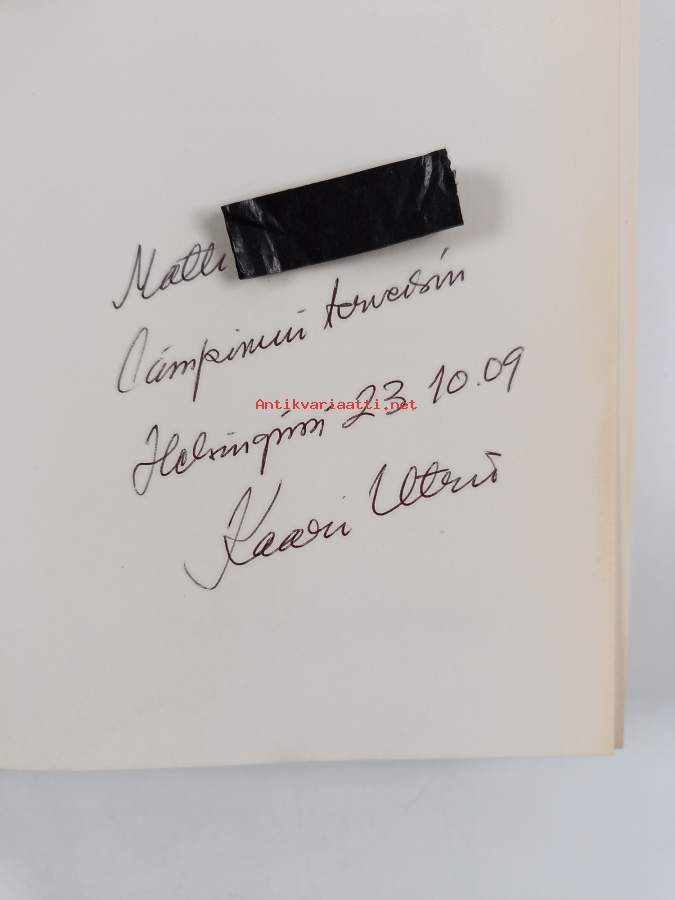 Matti
Lämpimin terveisin
Antikvariaatti.net
Helsingissä 23.10.09
Kaari Utrio